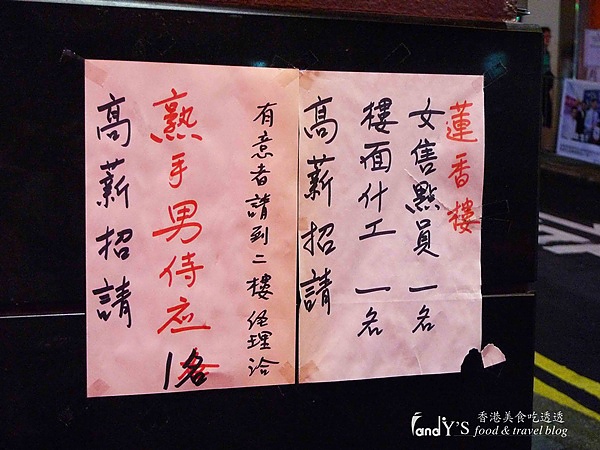 蓮香樓
女售點員一名
樓面什工一名
高薪招請
有意者請到二樓經理洽
熟手男侍应1名
高薪招請
FandY'S 香港美食吃透透
food & travel blog